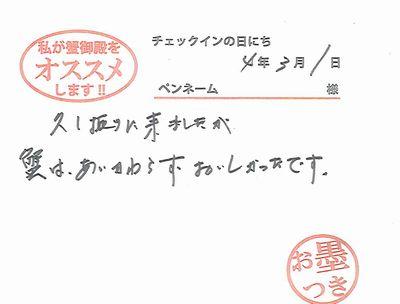 私が蟹御殿を
オススメ
します!!
チェックインの日にち
4年3月1日
ペンネーム 様
久し振りに来ましたが
蟹は、あいかわらず おいしかったです。
お墨
つき